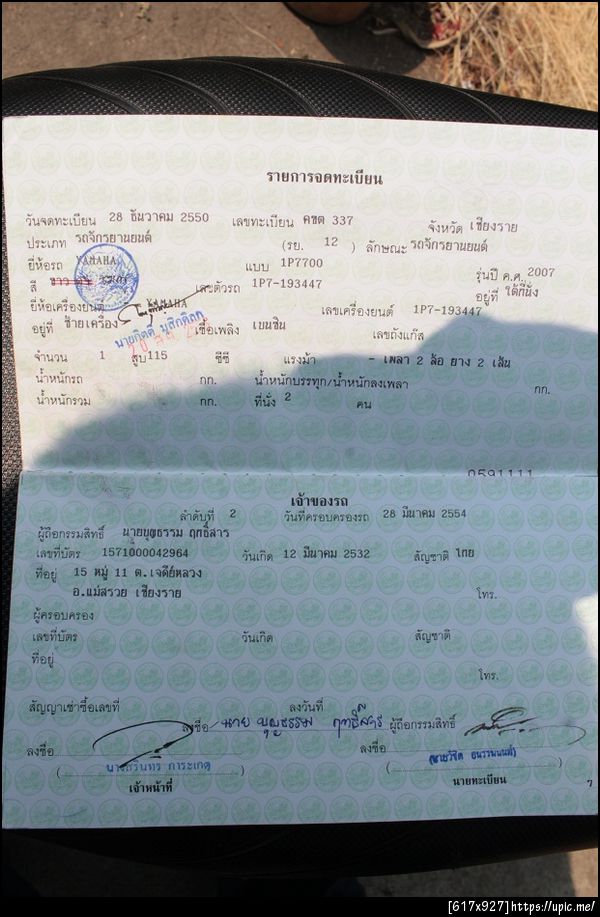 รายการจดทะเบียน
วันจดทะเบียน 28 ธันวาคม 2550 เลขทะเบียน คขต 337 จังหวัด เชียงราย
ประเภท รถจักรยานยนต์ (รย. 12 ) ลักษณะ รถจักรยานยนต์
ยี่ห้อรถ YAMAHA แบบ 1P7700 รุ่นปี ค.ศ. 2007
สี เลขตัวรถ 1P7-193447 อยู่ที่ ใต้ที่นั่ง
ยี่ห้อเครื่องยนต์ YAMAHA เลขเครื่องยนต์ 1P7-193447
อยู่ที่ ซ้ายเครื่อง เชื้อเพลิง เบนซิน เลขถังแก๊ส
จำนวน 1 สูบ 115 ซีซี แรงม้า - เพลา 2 ล้อ ยาง 2 เส้น
น้ำหนักรถ กก. น้ำหนักบรรทุก/น้ำหนักลงเพลา กก.
น้ำหนักรวม กก. ที่นั่ง 2 คน
0591111
เจ้าของรถ
ลำดับที่ 2 วันที่ครอบครองรถ 28 มีนาคม 2554
ผู้ถือกรรมสิทธิ์ นายบุญธรรม ฤทธิ์สาร
เลขที่บัตร 1571000042964 วันเกิด 12 มีนาคม 2532 สัญชาติ ไทย
ที่อยู่ 15 หมู่ 11 ต.เจดีย์หลวง
อ.แม่สรวย เชียงราย โทร.
ผู้ครอบครอง
เลขที่บัตร วันเกิด สัญชาติ
ที่อยู่
โทร.
สัญญาเช่าซื้อเลขที่ ลงวันที่
ลงชื่อ นาย บุญธรรม ฤทธิ์สาร ผู้ถือกรรมสิทธิ์
ลงชื่อ ลงชื่อ
เจ้าหน้าที่ นายทะเบียน
[617x927]https://upic.me/